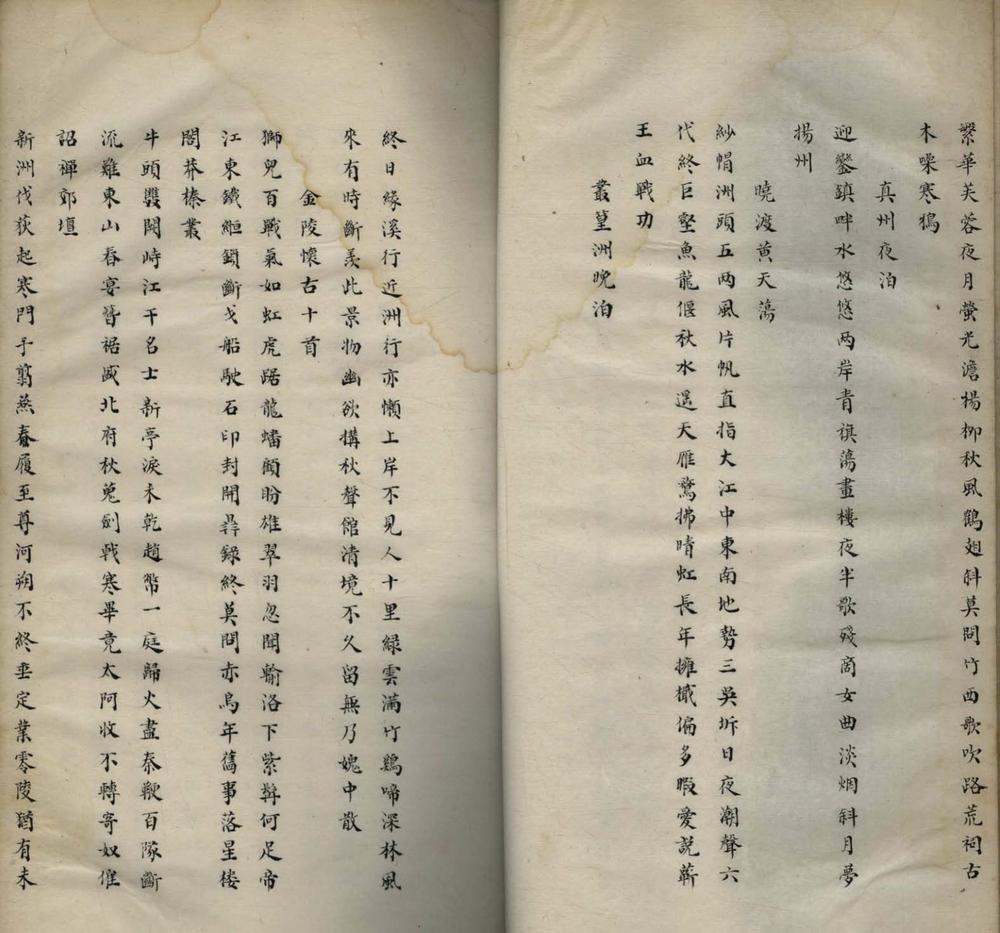 繁華芙蓉夜月螢光澹楊柳秋風鶴翅斜莫問竹西歌吹路荒祠古
木噪寒鴉
真州夜泊
迎鑾鎮畔水悠悠两岸青旗蕩畫樓夜半歌殘商女曲淡烟斜月夢
揚州
曉渡黄天蕩
紗帽洲頭五两風片帆直指大江中東南地勢三吳坼日夜潮聲六
代終巨壑魚龍偃秋水遥天雁鶩拂晴虹長年擁檝偏多暇愛説蘄
王血戰功
叢篁洲晚泊
終日緣溪行近洲行亦懶上岸不見人十里綠雲滿竹鷄啼深林風
來有時斷羡此景物幽欲搆秋聲館清境不久留無乃媿中散
金陵懷古十首
獅兒百戰氣如虹虎踞龍蟠顧盼雄翠羽忽聞輸洛下紫髯何足帝
江東鐵絙鎖斷戈船駛石印封開讖録終莫問赤烏年舊事落星樓
閣莽榛叢
牛頭雙闕峙江干名士新亭淚未乾趙幣一庭歸火盡秦鞭百隊斷
流難東山春宴簪裾盛北府秋蒐劍戟寒畢竟太阿收不轉寄奴催
詔禪郊壇
新洲伐荻起寒門予翦燕秦履至尊河朔不終垂定業零陵猶有未